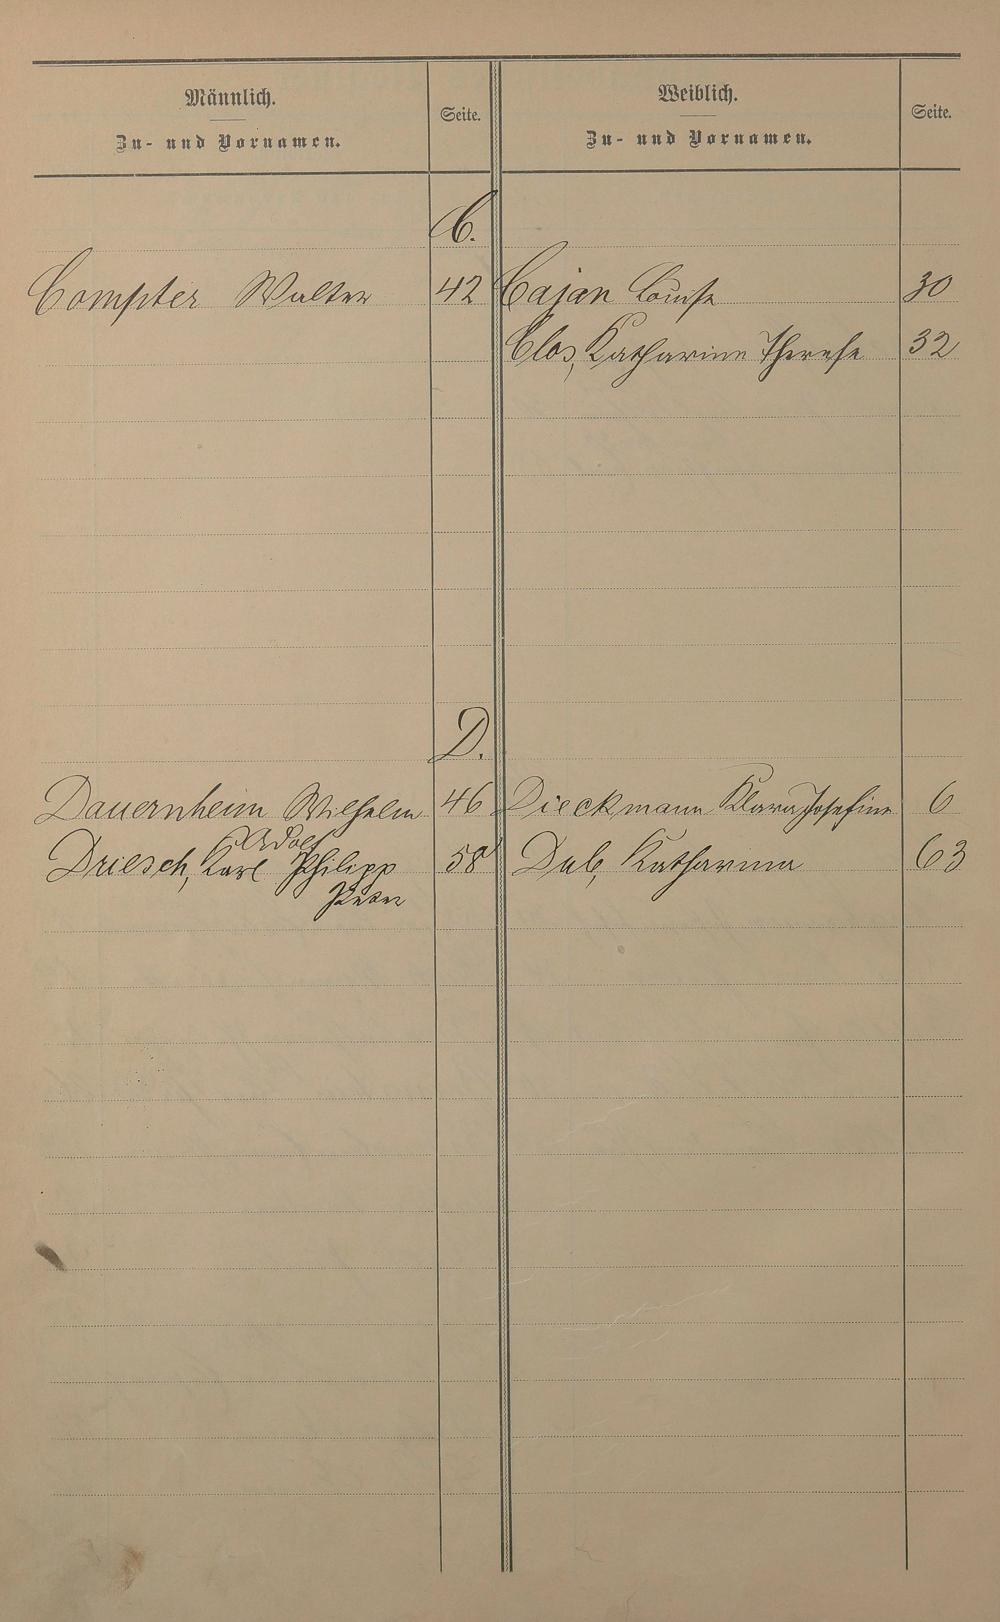 Männlich.
Zu- und Vornamen.
Seite.
Weiblich.
Zu- und Vornamen.
Seite.
C.
Compter Walter 42 Cajan Louise 30
Clos, Katharine Therese 32
D.
Dauernheim Wilhelm 46 Dieckmann Klara Josefine 6
Adolf
Driesch, Karl Philipp 58 Dub, Katharina 63
Peter